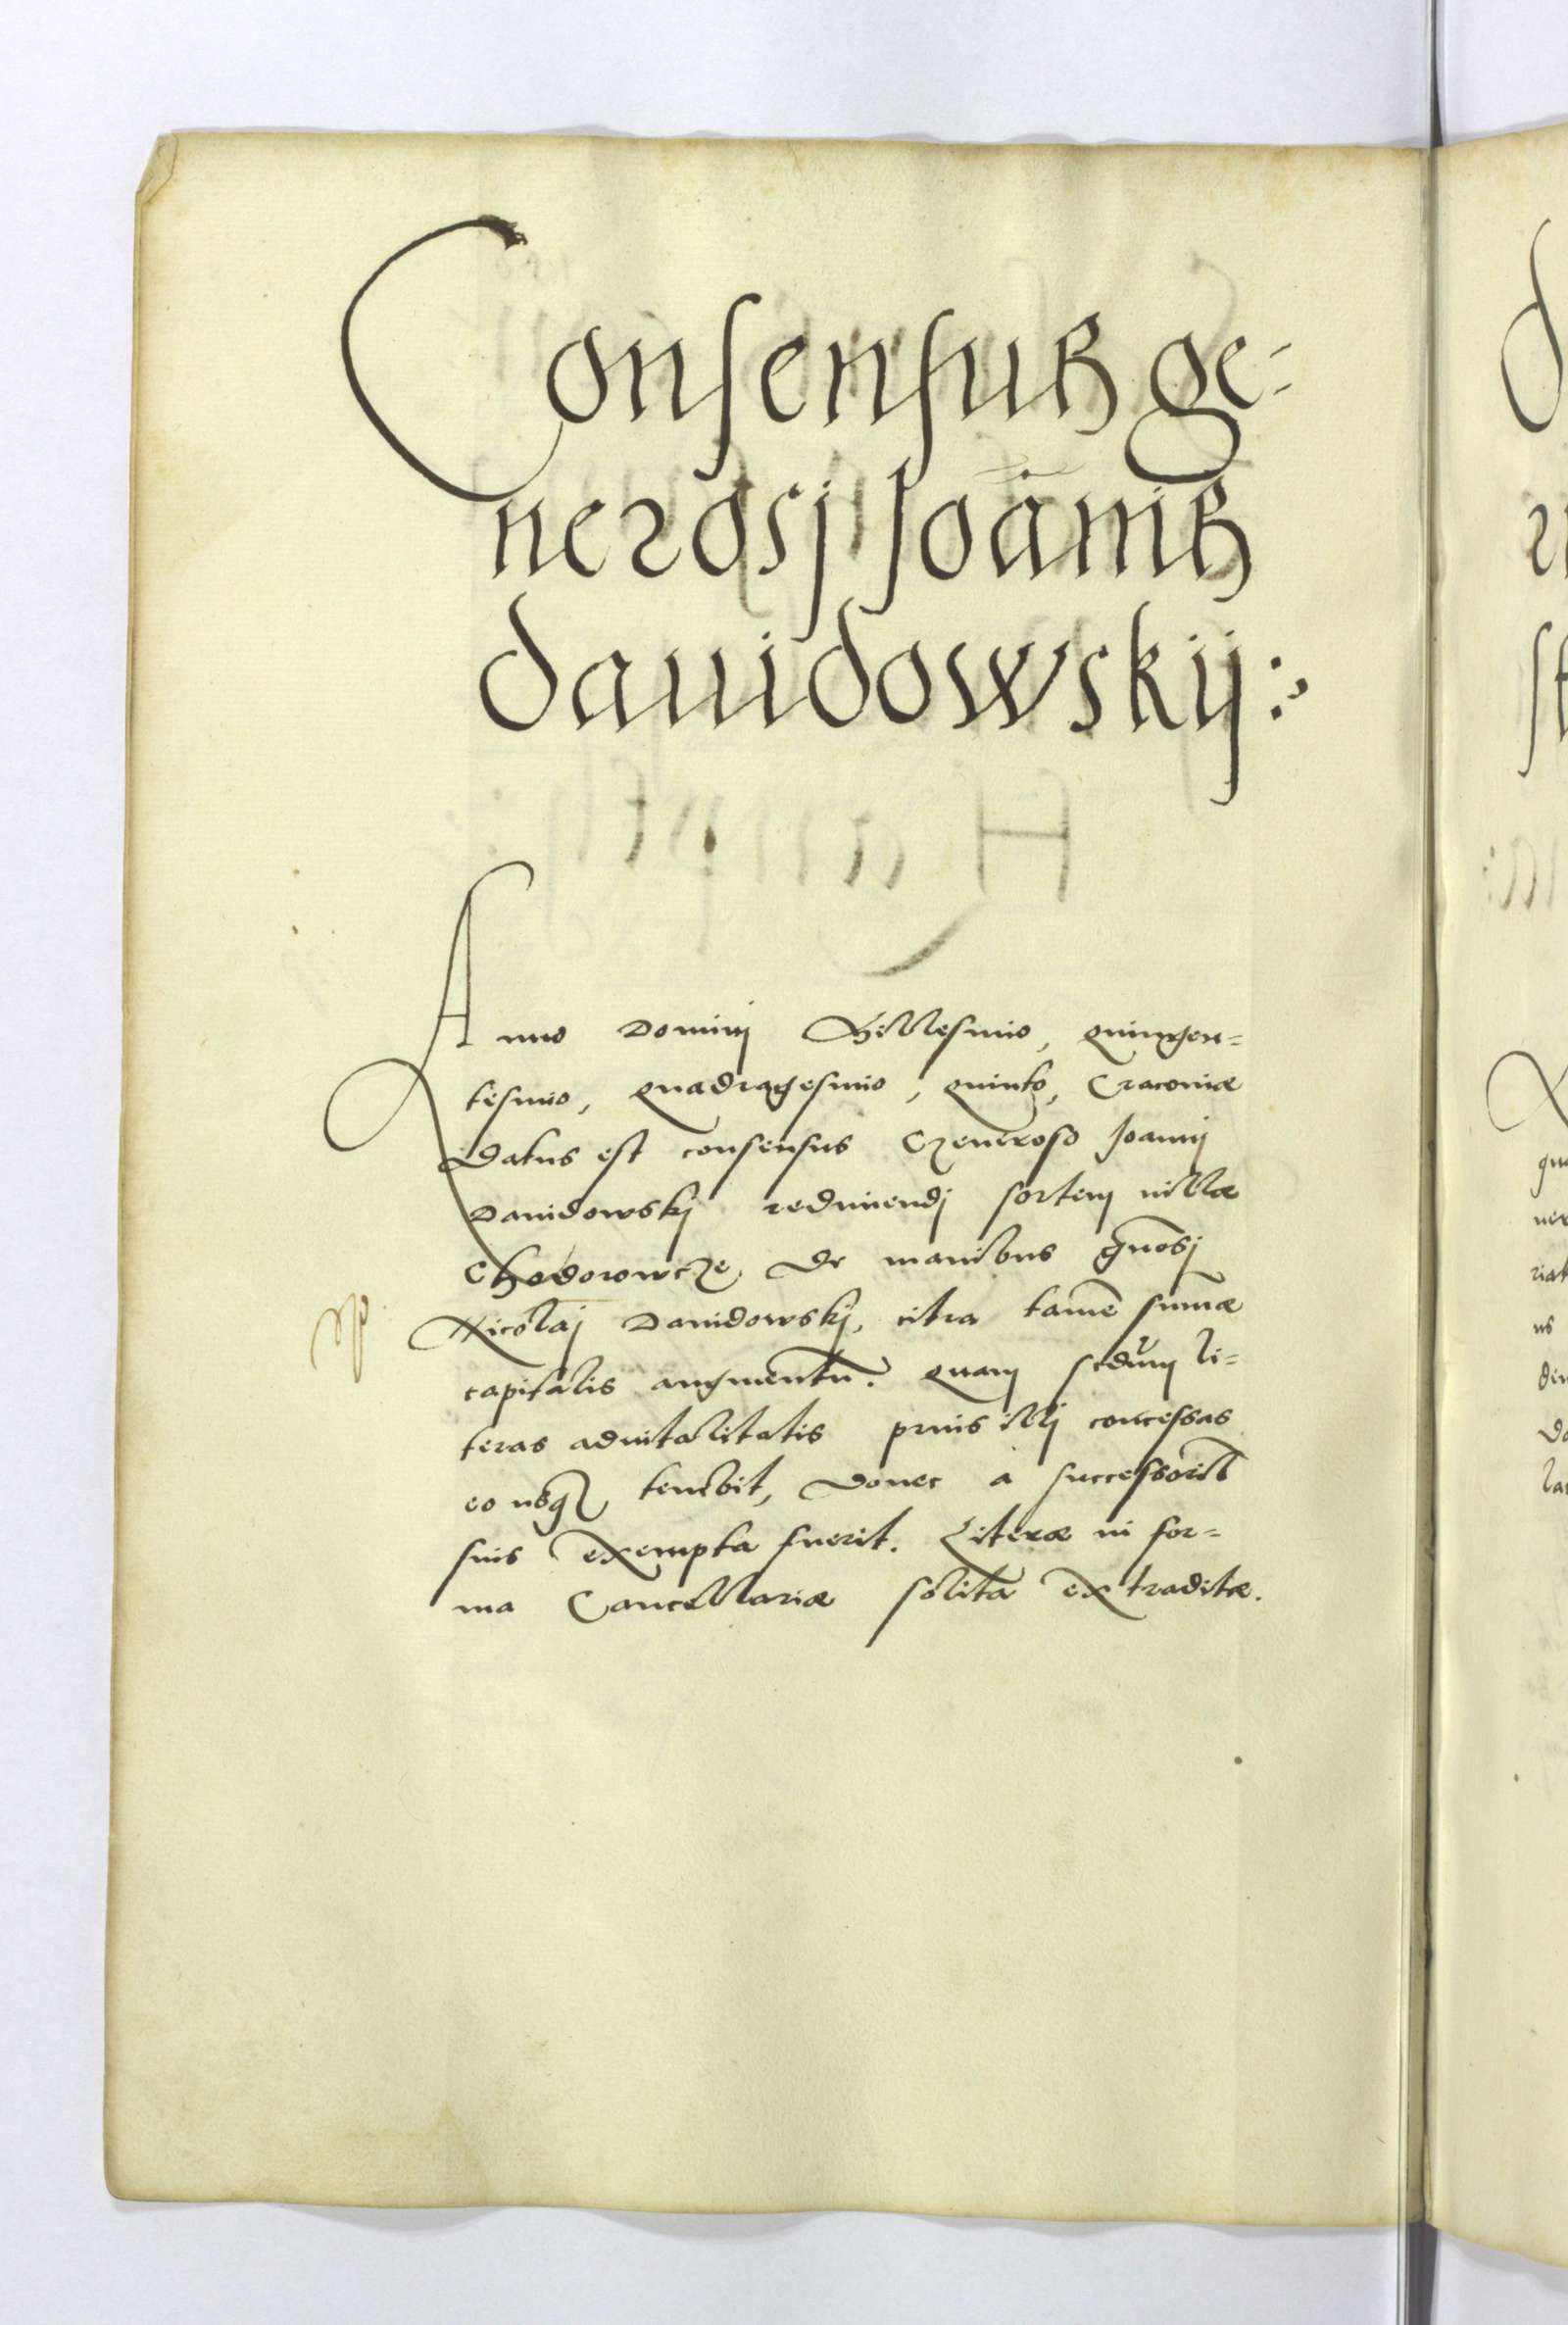 Consensus ge-
nerosj Joānis
Dauidowskij:
Anno Dominj Millesimo, quingen-
tesimo, quadragesimo, quinto, Cracoviæ
datus est consensus Generoso Joannj
Dauidowskj redimendj sortem villæ
Chodorowcze, de manibus gnosj
Nicolaj Dauidowskj, citra tamē summæ
capitalis augmentū. quam scdum li-
teras aduitalitatis prius illj concessas
eo usq tenebit, donec a successorib
suis exempta fuerit. Literæ in for-
ma Cancellariæ solita extraditæ.